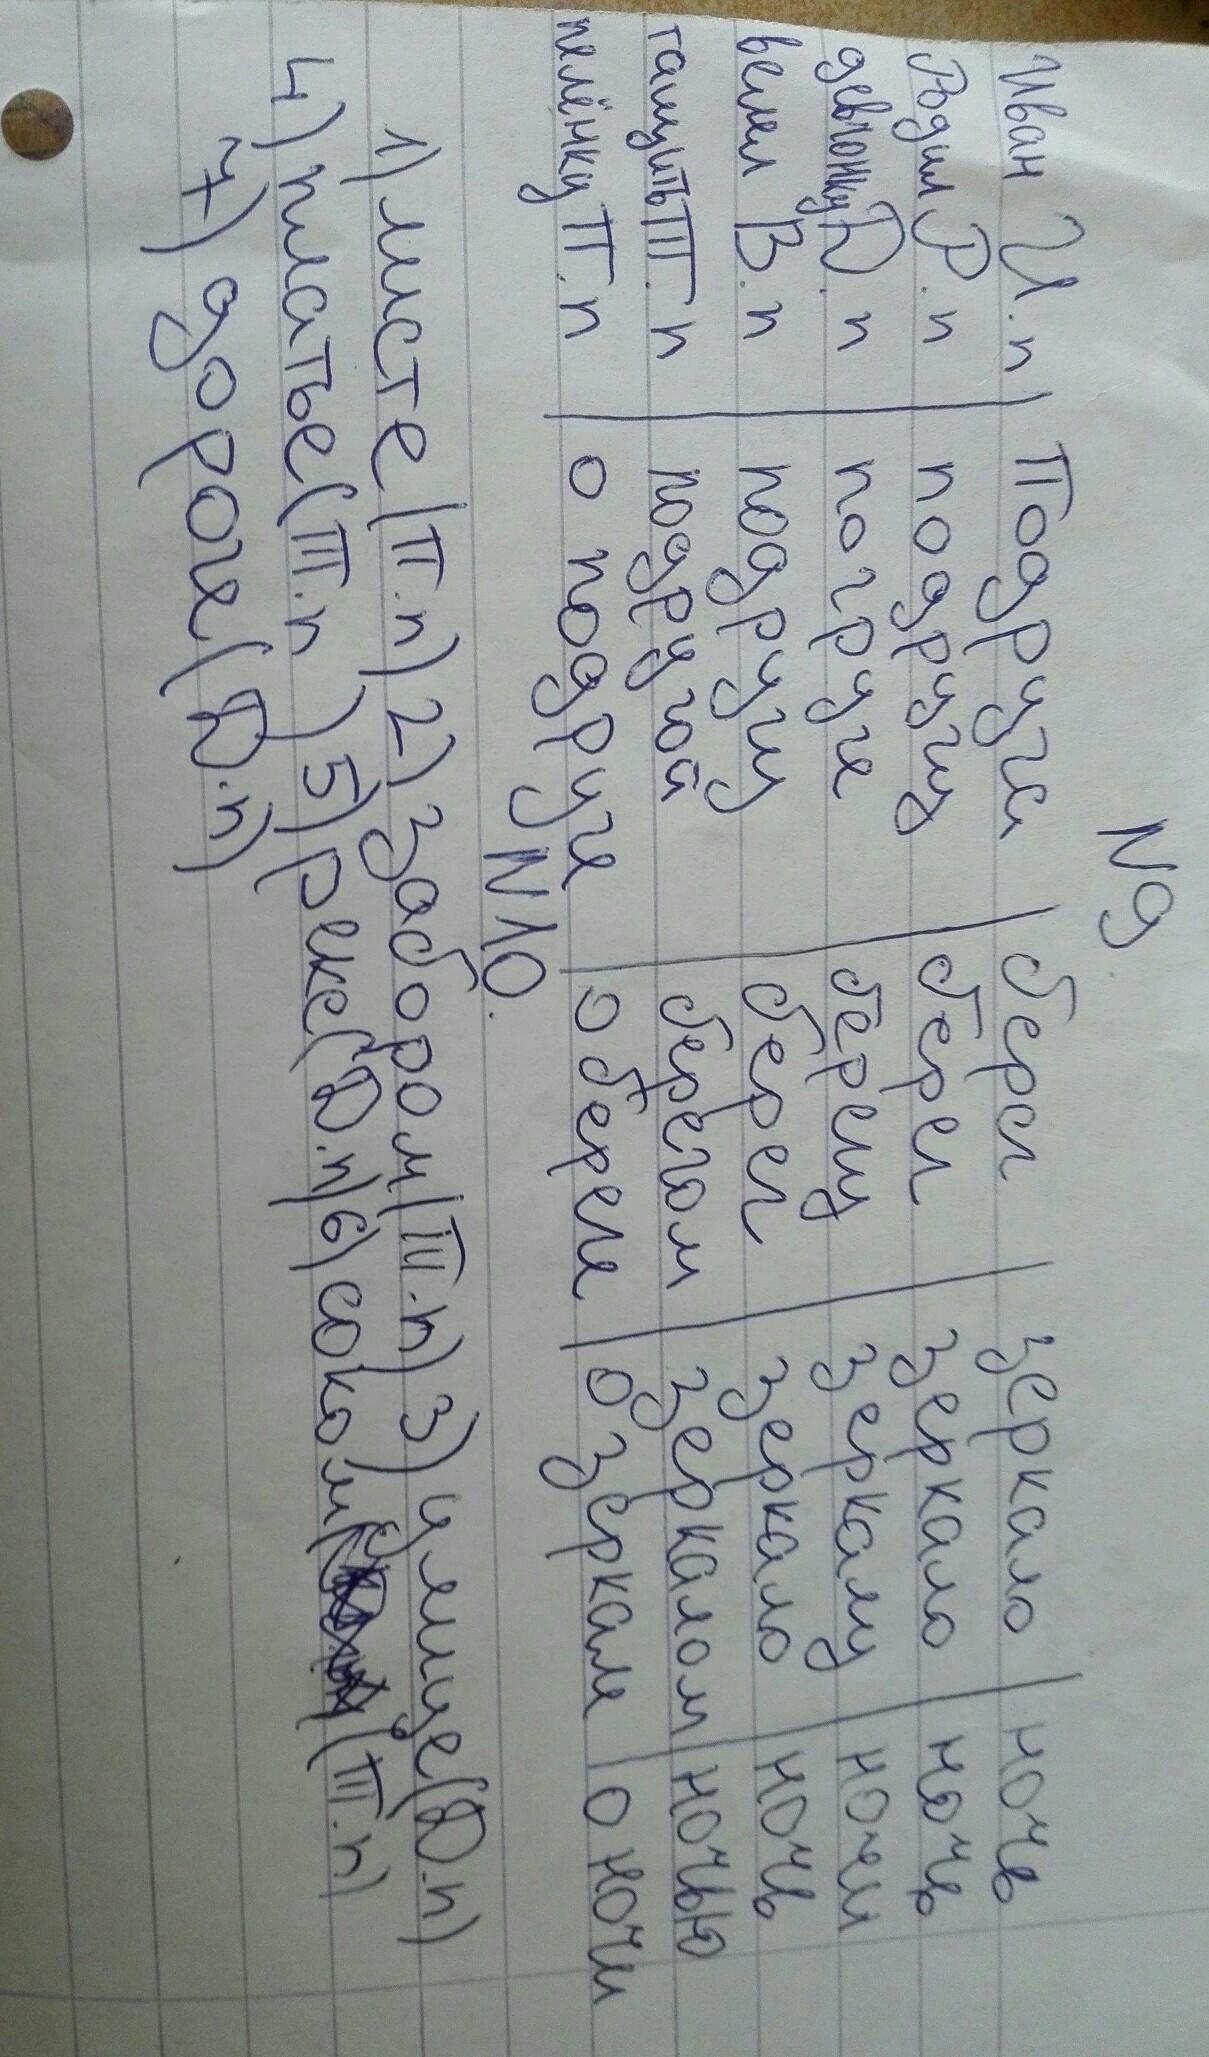 N9
Иван И.п | Подруга | берег | зеркало | ночь
Родил Р.п | подругу | берег | зеркало | ночь
девчонку Д.п | погруге | берегу | зеркалу | ночем
велел В.п | подругу | берег | зеркало | ночь
тащить Т.п | подругой | берегом | зеркалом | ночью
пелёнку П.п | о подруге | о береге | о зеркале | о ночи
N10.
1) листе (П.п) 2) забором (Т.п) 3) улице (Д.п)
4) платье (П.п) 5) реке (Д.п) 6) соком (Т.п)
7) дороге (Д.п)